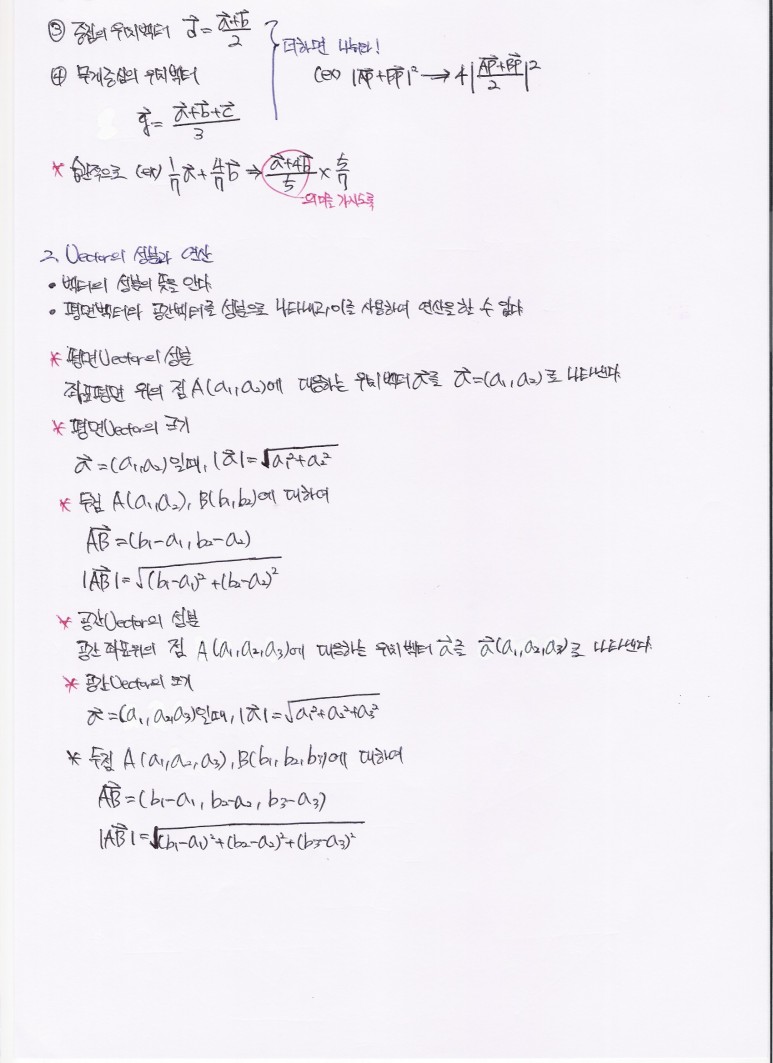 ③ 중점의 위치벡터 d⃗ = (a⃗+b⃗)/2
더하면 나눠라!
(ex) |AP⃗+BP⃗|² → 4|(AP⃗+BP⃗)/2|²
④ 무게중심의 위치벡터
g⃗ = (a⃗+b⃗+c⃗)/3
* 습관적으로 (ex) 1/7 a⃗ + 4/7 b⃗ ⇒ (a⃗+4b⃗)/5 × 5/7
의미를 가지도록
2. Vector의 성분과 연산
• 벡터의 성분의 뜻을 안다
• 평면벡터와 공간벡터를 성분으로 나타내고, 이를 사용하여 연산을 할 수 있다
* 평면Vector의 성분
좌표평면 위의 점 A(a₁,a₂)에 대응하는 위치벡터 a⃗를 a⃗=(a₁,a₂)로 나타낸다
* 평면Vector의 크기
a⃗=(a₁,a₂)일때, |a⃗|=√(a₁²+a₂²)
* 두점 A(a₁,a₂), B(b₁,b₂)에 대하여
AB⃗=(b₁-a₁, b₂-a₂)
|AB⃗|=√((b₁-a₁)²+(b₂-a₂)²)
* 공간Vector의 성분
공간 좌표위의 점 A(a₁,a₂,a₃)에 대응하는 위치벡터 a⃗를 a⃗(a₁,a₂,a₃)로 나타낸다
* 공간Vector의 크기
a⃗=(a₁,a₂,a₃)일때, |a⃗|=√(a₁²+a₂²+a₃²)
* 두점 A(a₁,a₂,a₃), B(b₁,b₂,b₃)에 대하여
AB⃗=(b₁-a₁, b₂-a₂, b₃-a₃)
|AB⃗|=√((b₁-a₁)²+(b₂-a₂)²+(b₃-a₃)²)